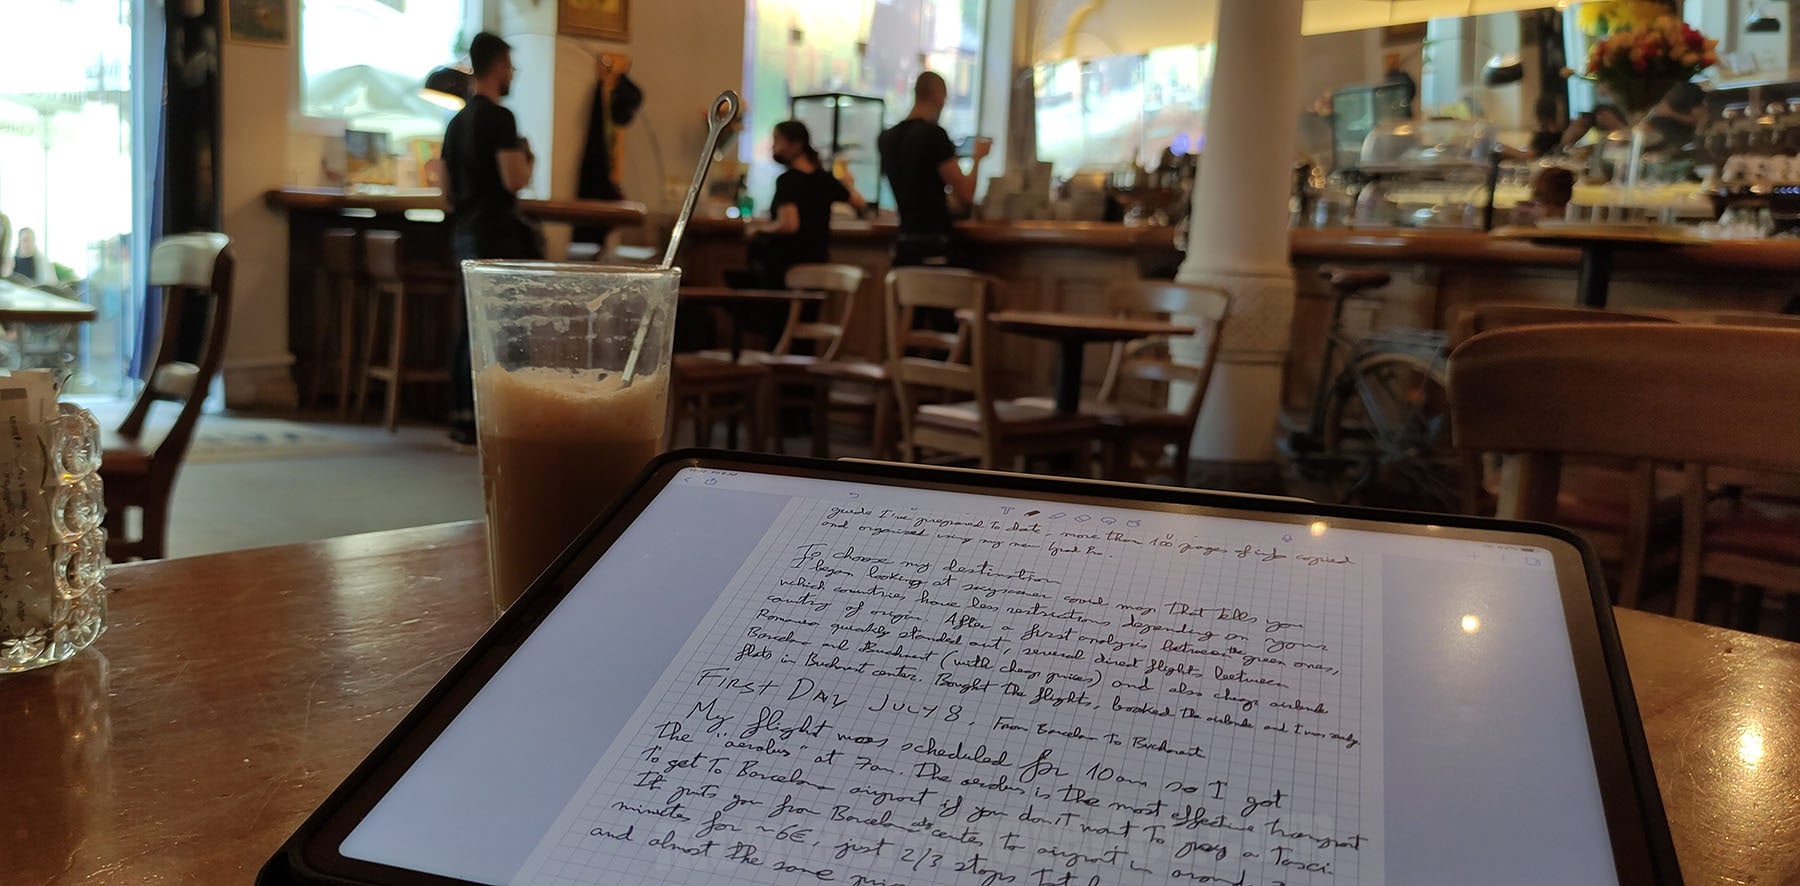 guide I've prepared to date, more than 100 pages of info copied
and organized using my new Ipad Pro.
To choose my destination
I began looking at skyscanner covid map that tells you
which countries have less restrictions depending on your
country of origin. After a first analysis between the green ones,
Romania quickly standed out, several direct flights between
Barcelona and Bucharest (with cheap prices) and also cheap airbnb
flats in Bucharest center. Bought the flights, booked the airbnb and I was ready.
FIRST DAY JULY 8, From Barcelona to Bucharest
My flight was scheduled for 10am so I got
the "aerobus" at 7am. The aerobus is the most effective transport
to get to Barcelona airport if you don't want to pay a Taxi.
It puts you from Barcelona center to airport in around
minutes for ~6€, just 2/3 stops
and almost the same